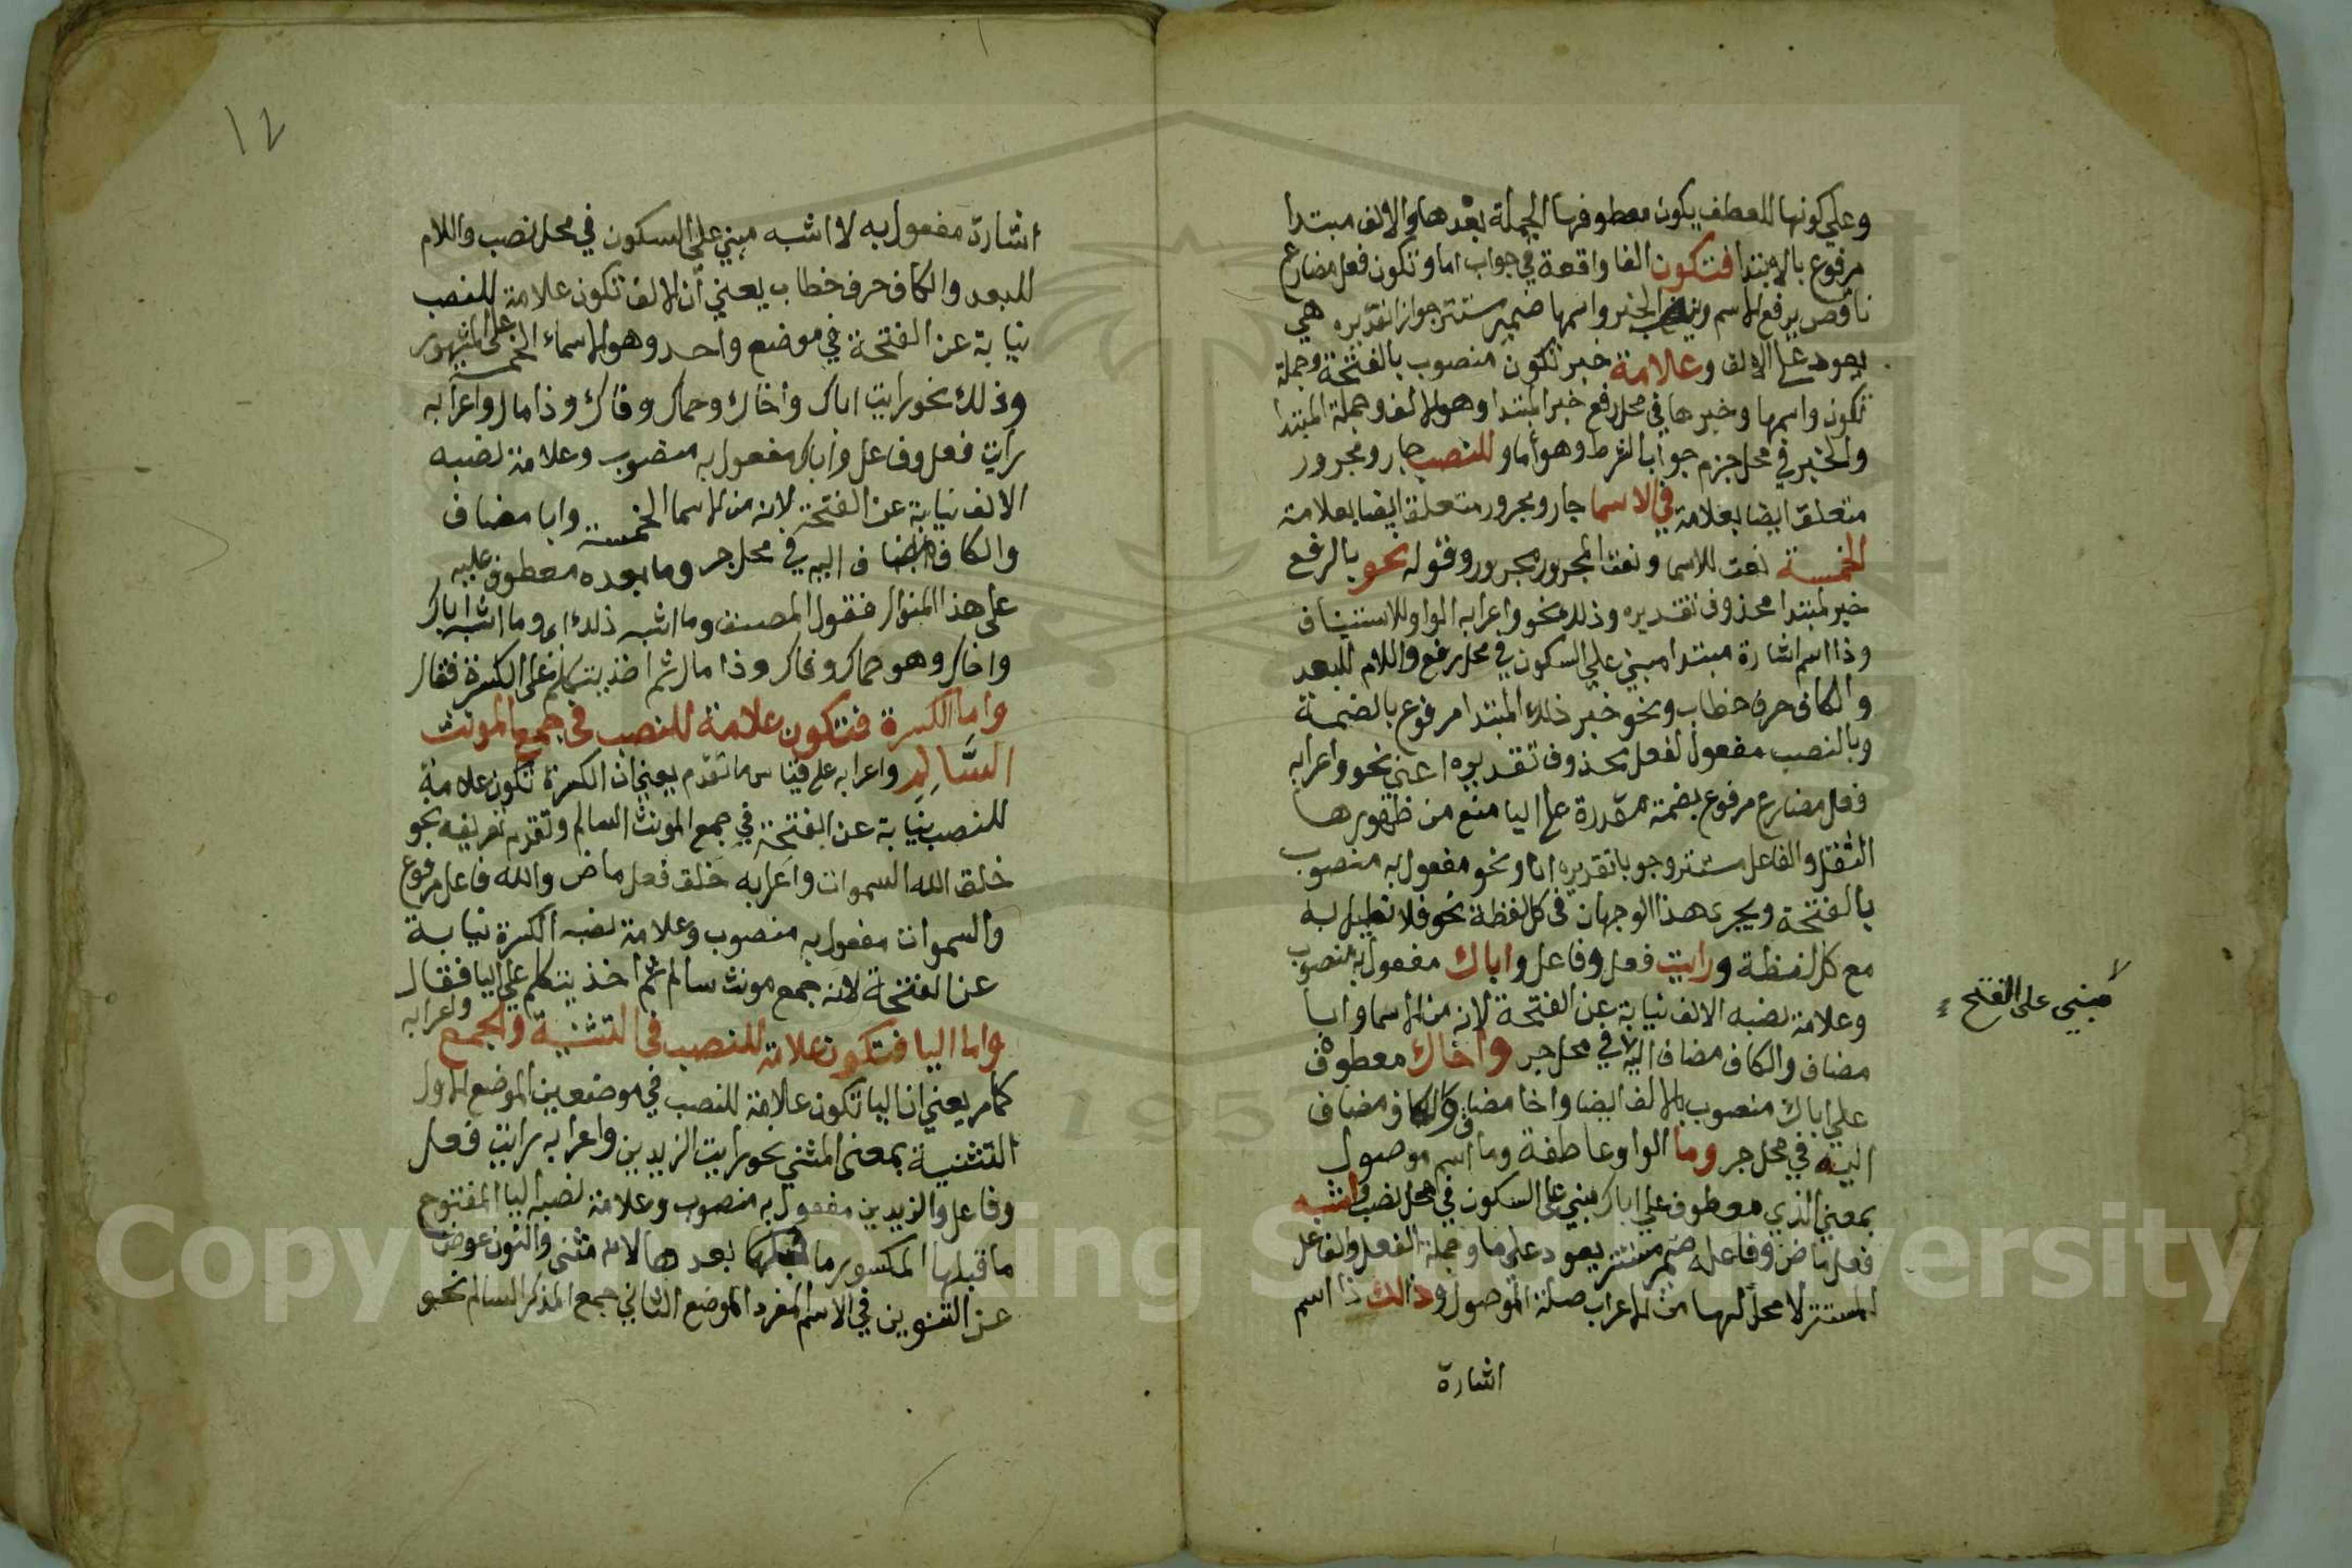 وعلي كونها للعطف يكون معطوفها الجملة بعدها والالف مبتدا
مرفوع بالابتدا فتكون الفا واقعة في جواب اما وتكون فعل مضارع
ناقص يرفع الاسم وينصب الخبر واسمها ضمير مستتر جوازا تقديره هي
يعود علي الالف وعلامة خبر تكون منصوب بالفتحة وجملة
تكون واسمها وخبرها في محل رفع خبر المبتدا وهو الالف وجملة المبتدا
والخبر في محل جزم جواب الشرط وهو أما وللنصب جار ومجرور
متعلق ايضا بعلامة في الاسما جار ومجرور متعلق ايضا بعلامة
الخمسة نعت للاسما ونعت المجرور مجرور وقوله نحو بالرفع
خبر لمبتدا محذوف تقديره وذلك نحو واعرابه الواو للاستيناف
وذا اسم اشارة مبتدا مبني علي السكون في محل رفع واللام للبعد
والكاف حرف خطاب ونحو خبر ذلك المبتدا مرفوع بالضمة
وبالنصب مفعول لفعل محذوف تقديره اعني نحو واعرابه
فعل مضارع مرفوع بضمة مقدرة علي اليا منع من ظهورها
الثقل والفاعل مستتر وجوبا تقديره انا ونحو مفعول به منصوب
بالفتحة ويجري هذا الوجهان في كل لفظة نحو فلا نطيل به
مع كل لفظة ورايت فعل وفاعل واباك مفعول به منصوب
وعلامة نصبه الالف نيابة عن الفتحة لانه من الاسما وابا
مضاف والكاف مضاف اليه في محل جر واخاك معطوف
علي اباك منصوب بالالف ايضا واخا مضاف والكاف مضاف
اليه في محل جر وما الواو عاطفة وما اسم موصول
بمعني الذي معطوف علي اباك مبني علي السكون في محل نصب واشبه
فعل ماض وفاعله ضمير مستتر يعود علي ما وجملة الفعل والفاعل
المستتر لا محل لها من الاعراب صلة الموصول وذالك ذا اسم
اشارة
مبني على الفتح
١٢
اشارة مفعول به لاشبه مبني علي السكون في محل نصب واللام
للبعد والكاف حرف خطاب يعني أن الالف تكون علامة للنصب
نيابة عن الفتحة في موضع واحد وهو الاسماء الخمسة علي المشهور
وذلك نحو رايت اباك واخاك وحماك وفاك وذا مال واعرابه
رايت فعل وفاعل واباك مفعول به منصوب وعلامة نصبه
الالف نيابة عن الفتحة لانه من الاسما الخمسة وابا مضاف
والكاف مضاف اليه في محل جر وما بعده معطوف عليه
علي هذا المنوال فقول المصنف وما اشبه ذلك اي وما اشبه اباك
واخاك وهو حماك وفاك وذا مال ثم اخذ يتكلم علي الكسرة فقال
واما الكسرة فتكون علامة للنصب في جمع المونث
السَّالِمِ واعرابه علي قياس ما تقدم يعني ان الكسرة تكون علامة
للنصب نيابة عن الفتحة في جمع المونث السالم وتقدم تعريفه نحو
خلق الله السموات واعرابه خلق فعل ماض والله فاعل مرفوع
والسموات مفعول به منصوب وعلامة نصبه الكسرة نيابة
عن الفتحة لانه جمع مونث سالم ثم اخذ يتكلم علي اليا فقال
واما اليا فتكون علامة للنصب في التثنية والجمع واعرابه
كما مر يعني ان اليا تكون علامة للنصب في موضعين الموضع الاول
التثنية بمعنى المثني نحو رايت الزيدين واعرابه رايت فعل
وفاعل والزيدين مفعول به منصوب وعلامة نصبه اليا المفتوح
ما قبلها المكسور ما بعدها لانه مثنى والنون عوض
عن التنوين في الاسم المفرد الموضع الثاني جمع المذكر السالم نحو
Copyright © King Saud University
195